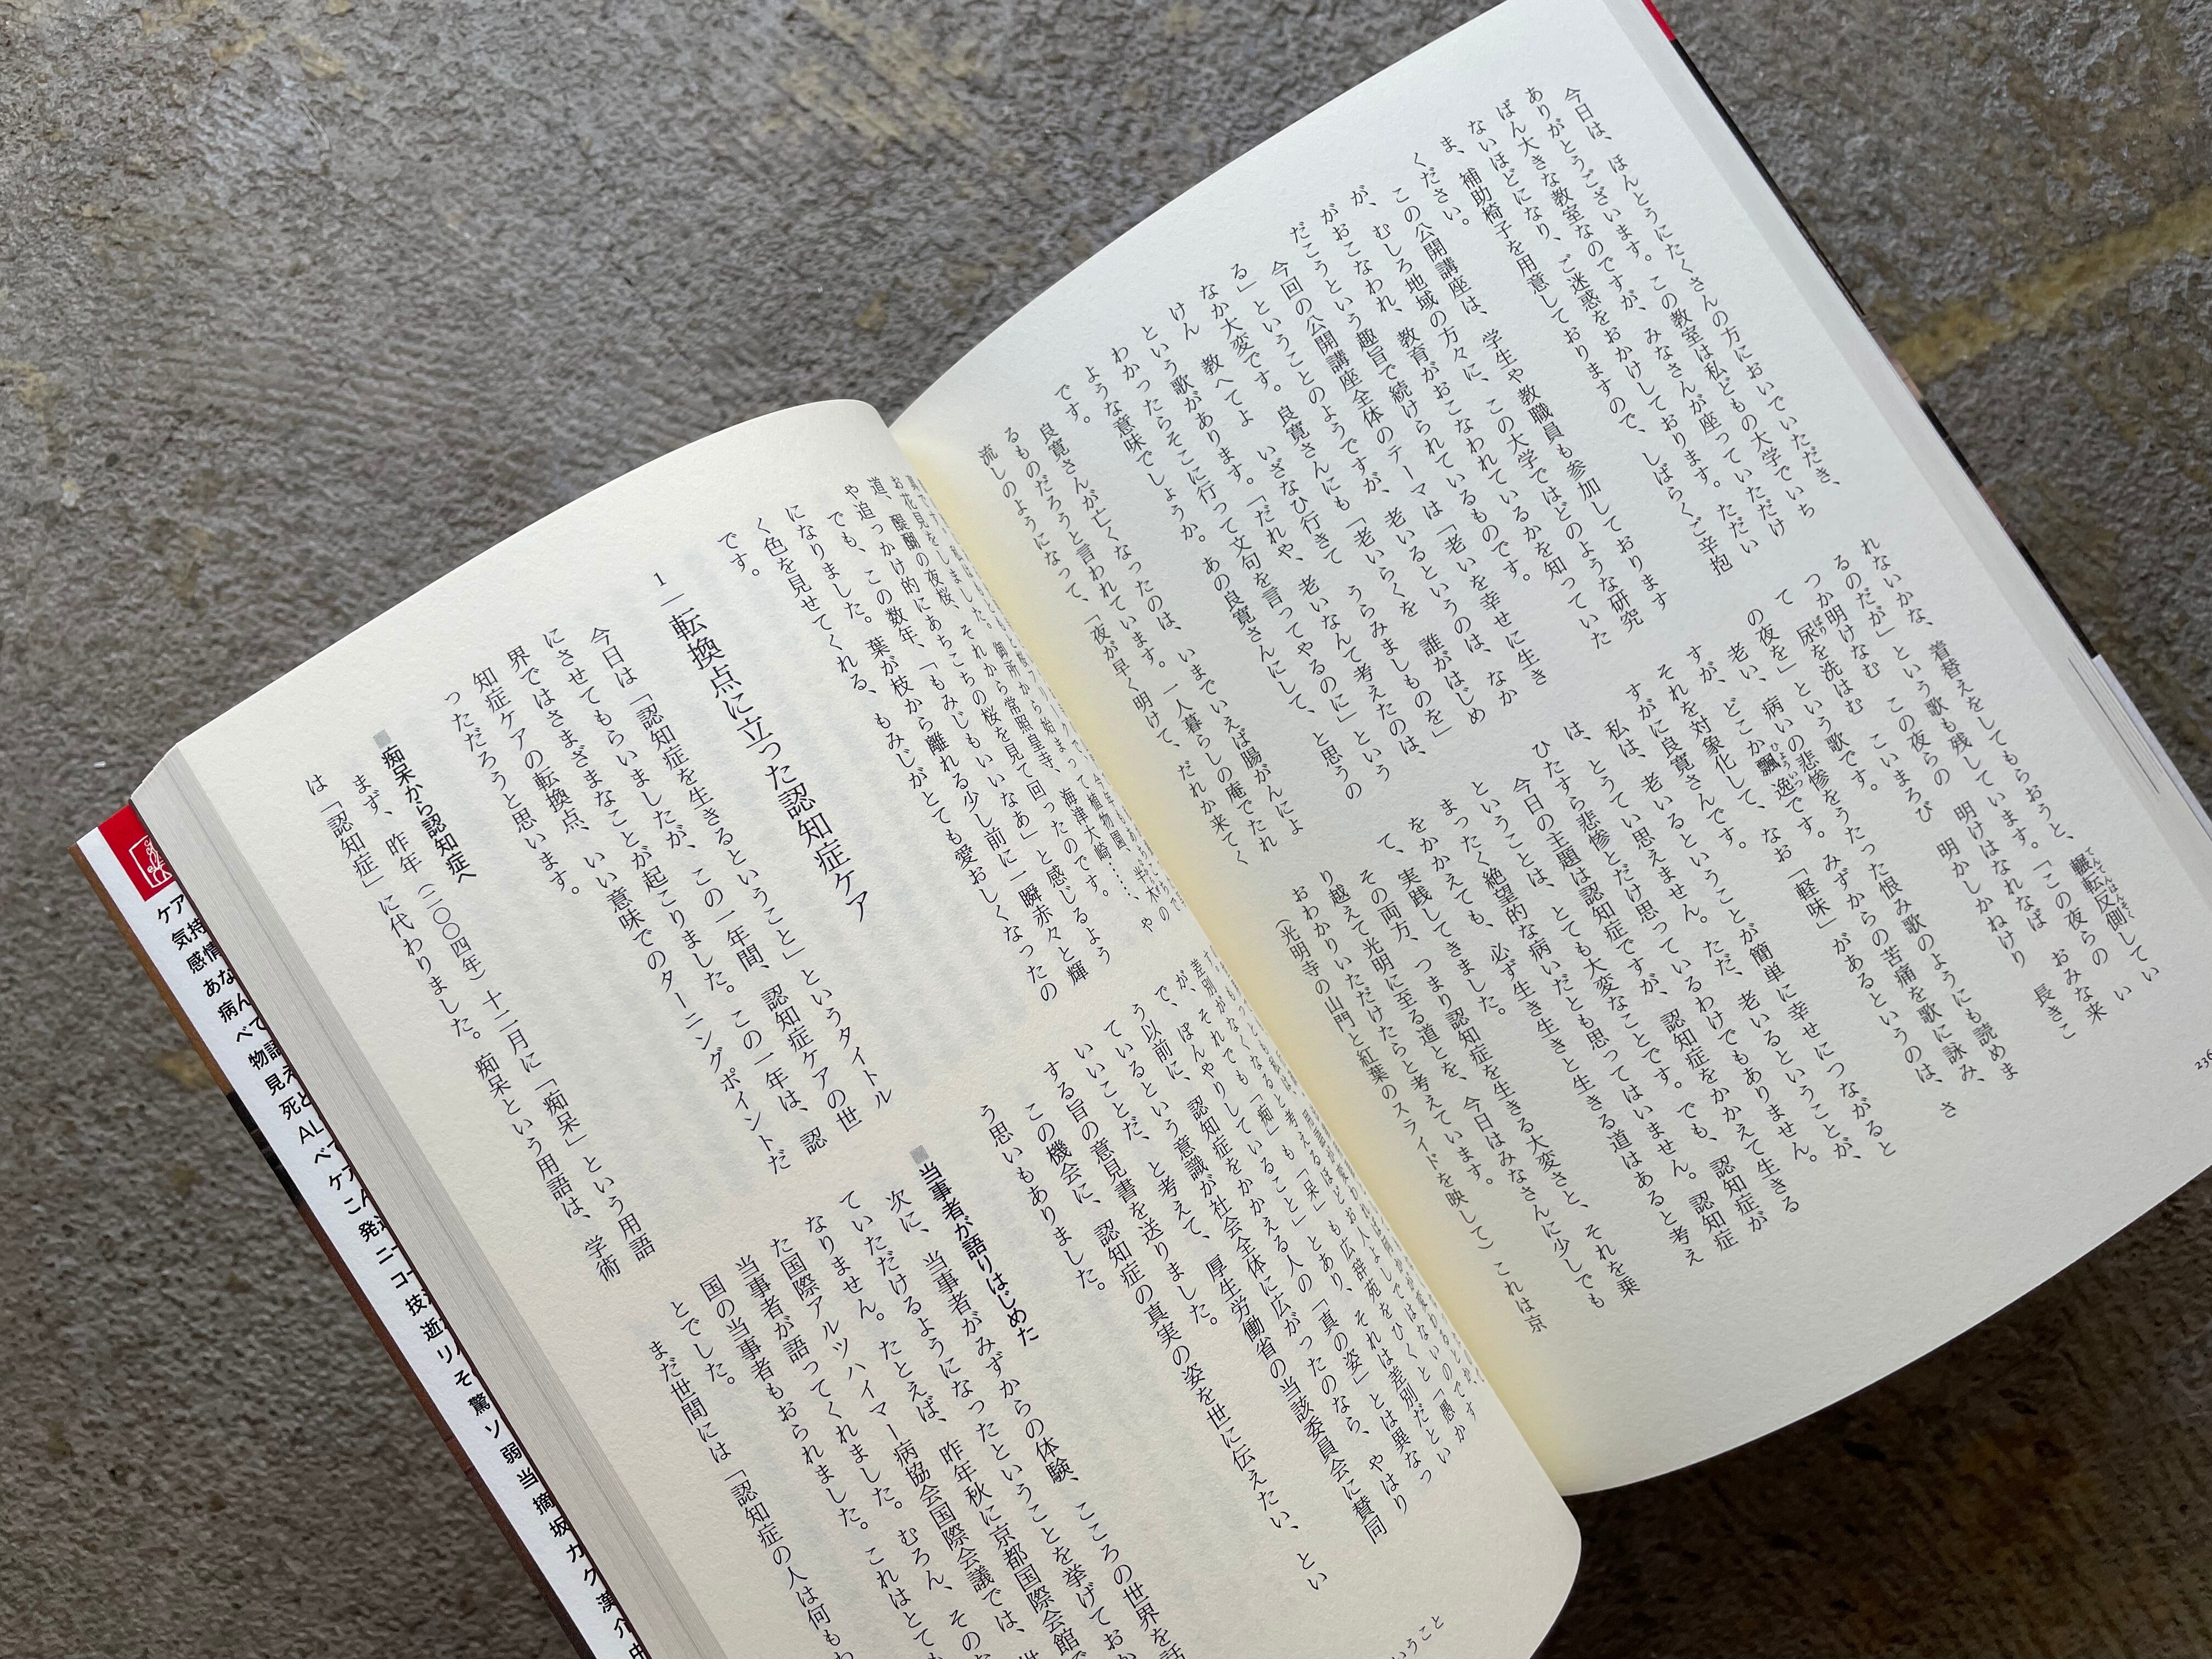 今日は、ほんとうにたくさんの方においでいただき、
ありがとうございます。この教室は私どもの大学でいち
ばん大きな教室なのですが、みなさんが座っていただけ
ないほどになり、ご迷惑をおかけしております。ただい
ま、補助椅子を用意しておりますので、しばらくご辛抱
ください。
この公開講座は、学生や教職員も参加しております
が、むしろ地域の方々に、この大学ではどのような研究
がおこなわれ、教育がおこなわれているかを知っていた
だこうという趣旨で続けられているものです。
今回の公開講座全体のテーマは「老いを幸せに生き
る」ということのようですが、老いるというのは、なか
なか大変です。良寛さんにも「老いらくを 誰がはじめ
けん 教へてよ いざなひ行きて うらみましものを」
という歌があります。「だれや、老いなんて考えたのは、
わかったらそこに行って文句を言ってやるのに」という
ような意味でしょうか。あの良寛さんにして、と思うの
です。
良寛さんが亡くなったのは、いまでいえば腸がんによ
るものだろうと言われています。一人暮らしの庵でたれ
流しのようになって、「夜が早く明けて、だれか来てく
れないかな、着替えをしてもらおうと、輾転反側してい
るのだが」という歌も残しています。「この夜らの い
つか明けなむ この夜らの 明けはなれなば おみな来
て 尿を洗はむ こいまろび 明かしかねけり 長きこ
の夜を」という歌です。
老い、病いの悲惨をうたった恨み歌のようにも読めま
すが、どこか飄逸です。みずからの苦痛を歌に詠み、
それを対象化して、なお「軽味」があるというのは、さ
すがに良寛さんです。
私は、老いるということが簡単に幸せにつながると
は、とうてい思えません。ただ、老いるということが、
ひたすら悲惨とだけ思っているわけでもありません。
今日の主題は認知症ですが、認知症をかかえて生きる
ということは、とても大変なことです。でも、認知症が
まったく絶望的な病いだとも思ってはいません。認知症
をかかえても、必ず生き生きと生きる道はあると考え
て、実践してきました。
その両方、つまり認知症を生きる大変さと、それを乗
り越えて光明に至る道とを、今日はみなさんに少しでも
おわかりいただけたらと考えています。
(光明寺の山門と紅葉のスライドを映して)これは京
236
道、醍醐の夜桜、それから常照皇寺、海津大崎……、や
や追っかけ的にあちこちの桜を見て回ったのです。
でも、この数年、「もみじもいいなあ」と感じるよう
になりました。葉が枝から離れる少し前に一瞬赤々と輝
く色を見せてくれる、もみじがとても愛おしくなったの
です。
1 転換点に立った認知症ケア
今日は「認知症を生きるということ」というタイトル
にさせてもらいましたが、この一年間、認知症ケアの世
界ではさまざまなことが起こりました。この一年は、認
知症ケアの転換点、いい意味でのターニングポイントだ
っただろうと思います。
痴呆から認知症へ
まず、昨年(二〇〇四年)十二月に「痴呆」という用語
は「認知症」に代わりました。痴呆という用語は、学術
差別がなくなると考えるほどお人よしではないのですが
が、それでも「痴」も「呆」も広辞苑をひくと「愚か
で、ぼんやりしていること」とあり、それは差別だとい
う以前に、認知症をかかえる人の「真の姿」とは異なっ
ているという意識が社会全体に広がったのなら、やはり
いいことだ、と考えて、厚生労働省の当該委員会に賛同
する旨の意見書を送りました。
この機会に、認知症の真実の姿を世に伝えたい、とい
う思いもありました。
当事者が語りはじめた
次に、当事者がみずからの体験、こころの世界を話
ていただけるようになったということを挙げておか
なりません。たとえば、昨年秋に京都国際会館で
た国際アルツハイマー病協会国際会議では、世
当事者が語ってくれました。むろん、その
国の当事者もおられました。これはとても
とでした。
まだ世間には「認知症の人は何もわ
いうこと